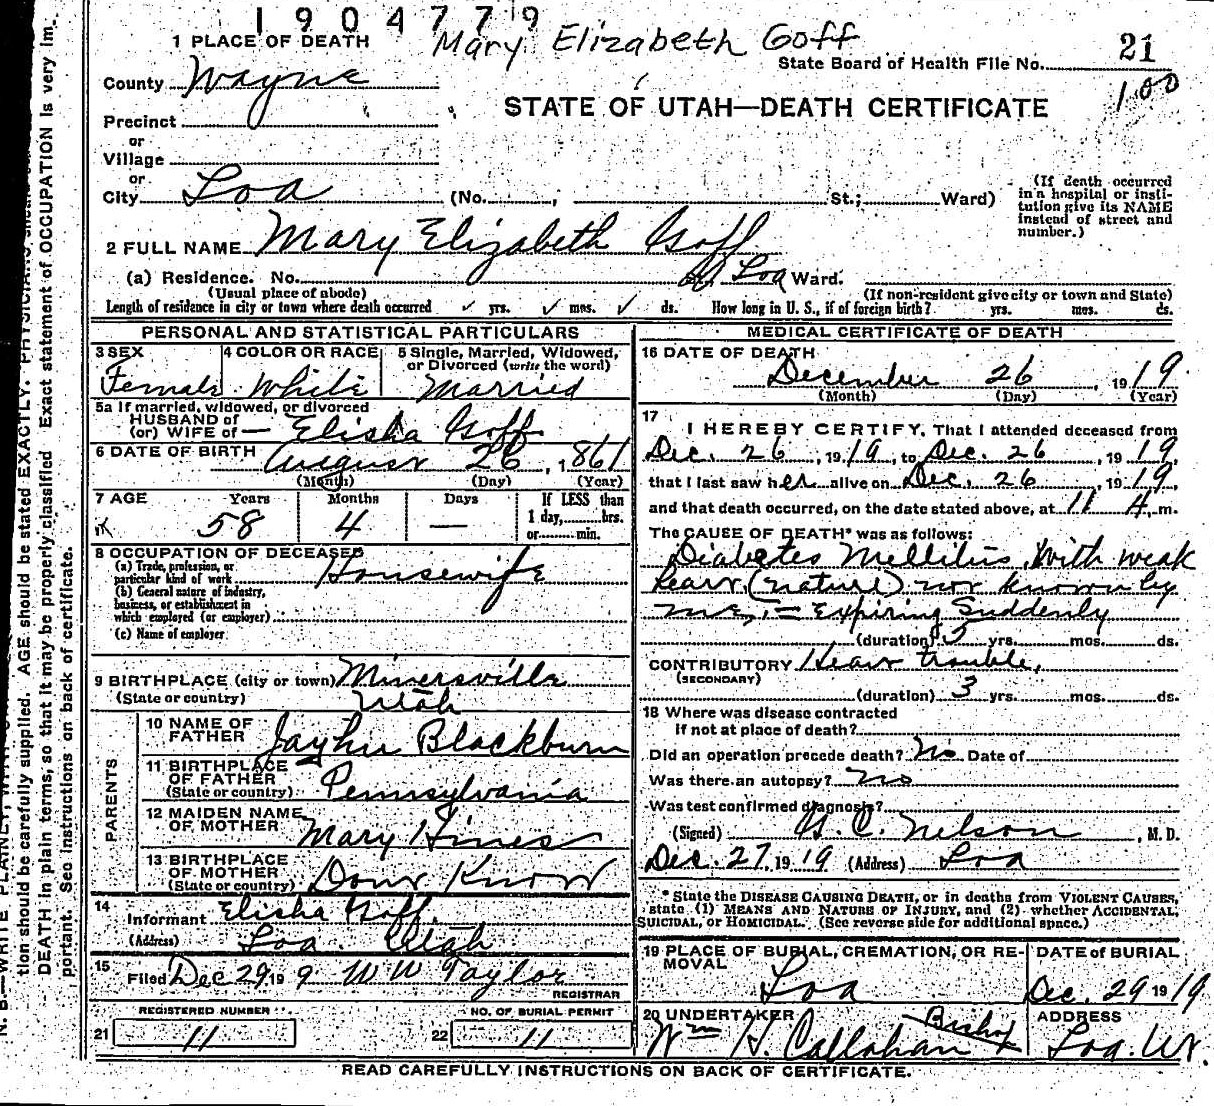 1904779
Mary Elizabeth Goff
1 PLACE OF DEATH
21
State Board of Health File No.
100
County Wayne
STATE OF UTAH—DEATH CERTIFICATE
Precinct
or
Village
or
City Loa (No. , St.; Ward)
(If death occurred
in a hospital or insti-
tution give its NAME
instead of street and
number.)
2 FULL NAME Mary Elizabeth Goff
(a) Residence. No. Loa Ward.
(Usual place of abode)
(If non-resident give city or town and State)
Length of residence in city or town where death occurred ✓ yrs. ✓ mos. ✓ ds. How long in U. S., if of foreign birth? yrs. mos. ds.
PERSONAL AND STATISTICAL PARTICULARS
3 SEX
Female
4 COLOR OR RACE
White
5 Single, Married, Widowed,
or Divorced (write the word)
Married
5a If married, widowed, or divorced
HUSBAND of
(or) WIFE of — Elisha Goff
6 DATE OF BIRTH August 26, 1861
(Month) (Day) (Year)
7 AGE Years Months Days If LESS than
58 4 — 1 day, hrs.
or min.
8 OCCUPATION OF DECEASED
(a) Trade, profession, or
particular kind of work Housewife
(b) General nature of industry,
business, or establishment in
which employed (or employer)
(c) Name of employer
9 BIRTHPLACE (city or town) Minersville
(State or country) Utah
PARENTS
10 NAME OF
FATHER Jayhu Blackburn
11 BIRTHPLACE
OF FATHER
(State or country) Pennsylvania
12 MAIDEN NAME
OF MOTHER Mary Hines
13 BIRTHPLACE
OF MOTHER
(State or country) Dont Know
14
Informant Elisha Goff.
(Address) Loa. Utah
15
Filed Dec 29, 19 9 W W Taylor
REGISTRAR
REGISTERED NUMBER
21 11
NO. OF BURIAL PERMIT
22 11
MEDICAL CERTIFICATE OF DEATH
16 DATE OF DEATH
December 26, 19 19.
(Month) (Day) (Year)
17
I HEREBY CERTIFY, That I attended deceased from
Dec. 26, 19 19, to Dec. 26, 19 19,
that I last saw her alive on Dec. 26, 19 19,
and that death occurred, on the date stated above, at 11 A. m.
The CAUSE OF DEATH* was as follows:
Diabetes Mellitus, with weak
heart (nature) not known by
me, = Expiring Suddenly
(duration) 3 yrs. mos. ds.
CONTRIBUTORY Heart trouble,
(SECONDARY)
(duration) 3 yrs. mos. ds.
18 Where was disease contracted
If not at place of death?
Did an operation precede death? No Date of
Was there an autopsy? No
Was test confirmed diagnosis?
(Signed) G. C. Nelson, M. D.
Dec. 27, 19 19 (Address) Loa
* State the DISEASE CAUSING DEATH, or in deaths from VIOLENT CAUSES,
state (1) MEANS AND NATURE OF INJURY, and (2) whether ACCIDENTAL,
SUICIDAL, or HOMICIDAL. (See reverse side for additional space.)
19 PLACE OF BURIAL, CREMATION, OR RE-
MOVAL
Loa
DATE of BURIAL
Dec. 29 19 19
20 UNDERTAKER
Wm H. Callahan Bishop
ADDRESS
Loa. Ut.
READ CAREFULLY INSTRUCTIONS ON BACK OF CERTIFICATE.
tion should be carefully supplied. AGE should be stated EXACTLY.
DEATH in plain terms, so that it may be properly classified. Exact statement of OCCUPATION is very im-
portant. See instructions on back of certificate.